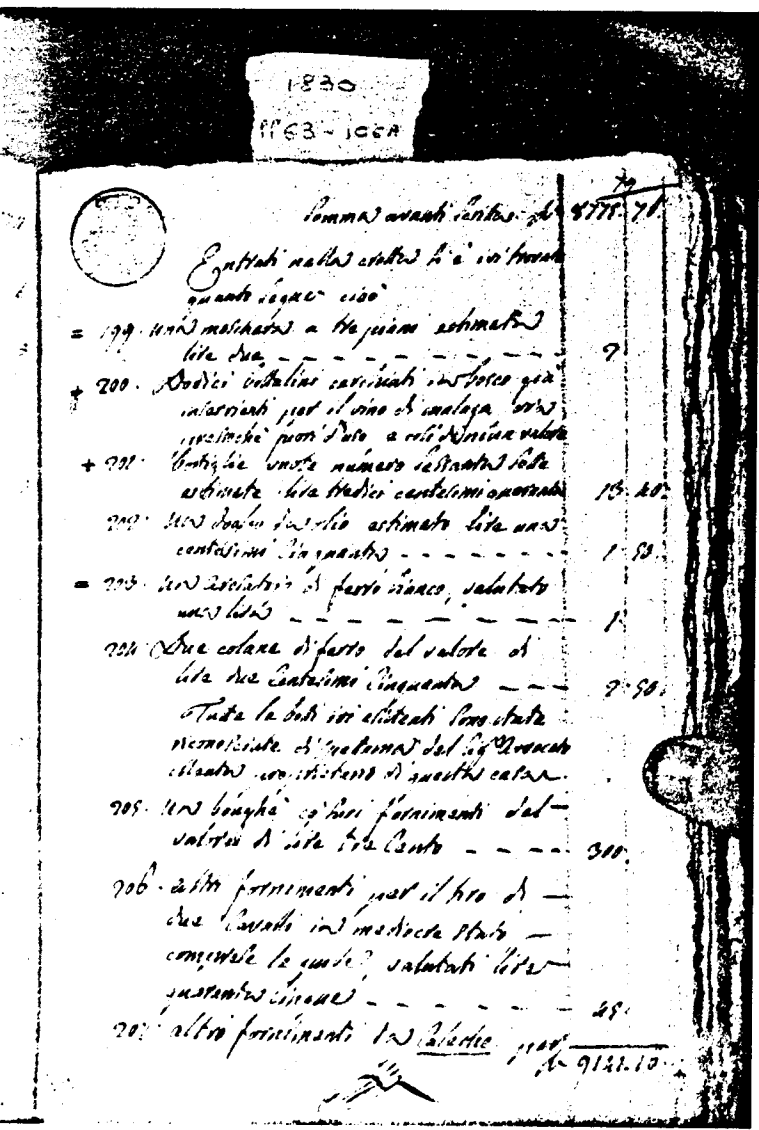 1830
PP63-106A
79
Somma avanti scritta 8778.70
Entrati nella crotta si è ivi trovato
quanto segue cioè
= 199. una moschera a tre piani estimata
lire due 2
+ 200. Dodici bottalini cerchiati in bosco già
inservienti per il vino di malaga, ora
perché fuori d'uso e così di niun valore
+ 201. bottiglie vuote numero sessanta sette
estimate lire tredici centesimi quaranta 13.40
202. Una doglia da olio estimato lire una
centesimi Cinquanta 1.50
= 203. Un di ferro bianco, valutato
una lira 1
204. Due colane di ferro del valore di
lire due Centesimi Cinquanta 2.50
Tutte le boti ivi esistenti sono state
riconosciute di del Sigr Avvocato
proprietario di questa casa
205. Un boughè co' suoi fornimenti del
valore di lire tre Cento 300
206. altri fornimenti per il tiro di
due Cavalli in mediocre stato
comprese le guide, valutati lire
quaranta cinque 45
207. altro fornimenti da Caleche per
9122.10